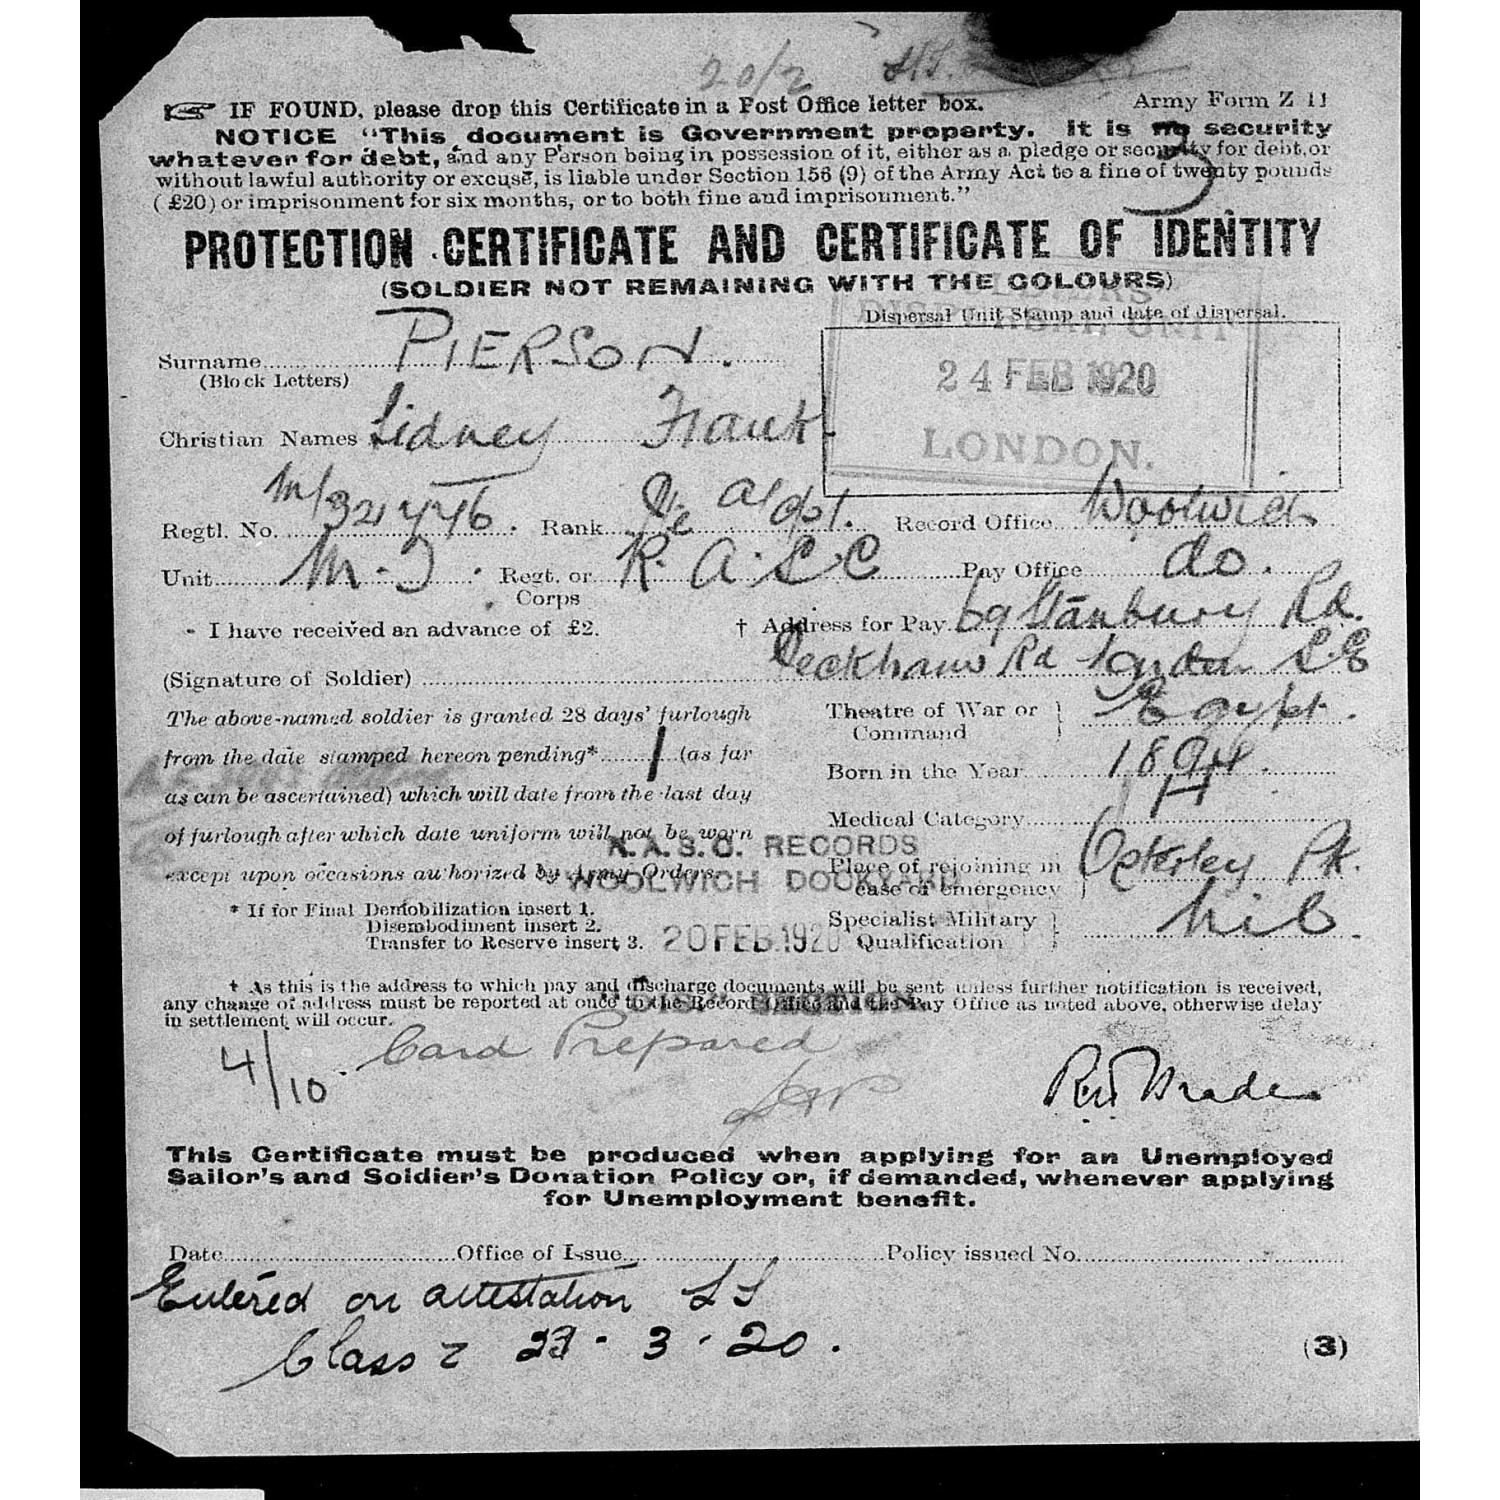 20/2
IF FOUND, please drop this Certificate in a Post Office letter box. Army Form Z 11
NOTICE "This document is Government property. It is no security
whatever for debt, and any Person being in possession of it, either as a pledge or security for debt, or
without lawful authority or excuse, is liable under Section 156 (9) of the Army Act to a fine of twenty pounds
(£20) or imprisonment for six months, or to both fine and imprisonment."
3
PROTECTION CERTIFICATE AND CERTIFICATE OF IDENTITY
(SOLDIER NOT REMAINING WITH THE COLOURS)
Dispersal Unit Stamp and date of dispersal.
DISPERSAL UNIT
24 FEB 1920
LONDON.
Surname PIERSON.
(Block Letters)
Christian Names Sidney Frank.
Regtl. No. M/321446. Rank Pte a/cpl. Record Office Woolwich
Unit M.T. Regt. or Corps R.A.S.C Pay Office do.
I have received an advance of £2. † Address for Pay 69 Stanbury Rd.
Peckham Rd London S.E
(Signature of Soldier)
The above-named soldier is granted 28 days' furlough
from the date stamped hereon pending* 1 (as far
as can be ascertained) which will date from the last day
of furlough after which date uniform will not be worn
except upon occasions authorized by Army Orders.
* If for Final Demobilization insert 1.
Disembodiment insert 2.
Transfer to Reserve insert 3.
Theatre of War or Command } Egypt.
Born in the Year 1894.
Medical Category A
Place of rejoining in case of emergency } Osterley Pk.
Specialist Military Qualification } Nil
R.A.S.C. RECORDS
WOOLWICH DOCKYARD
20 FEB. 1920
"DIS" SECTION
† As this is the address to which pay and discharge documents will be sent unless further notification is received,
any change of address must be reported at once to the Record Office and the Pay Office as noted above, otherwise delay
in settlement will occur.
4/10. Card Prepared
This Certificate must be produced when applying for an Unemployed
Sailor's and Soldier's Donation Policy or, if demanded, whenever applying
for Unemployment benefit.
Date Office of Issue Policy issued No.
Entered on attestation
Class Z 23.3.20.
(3)